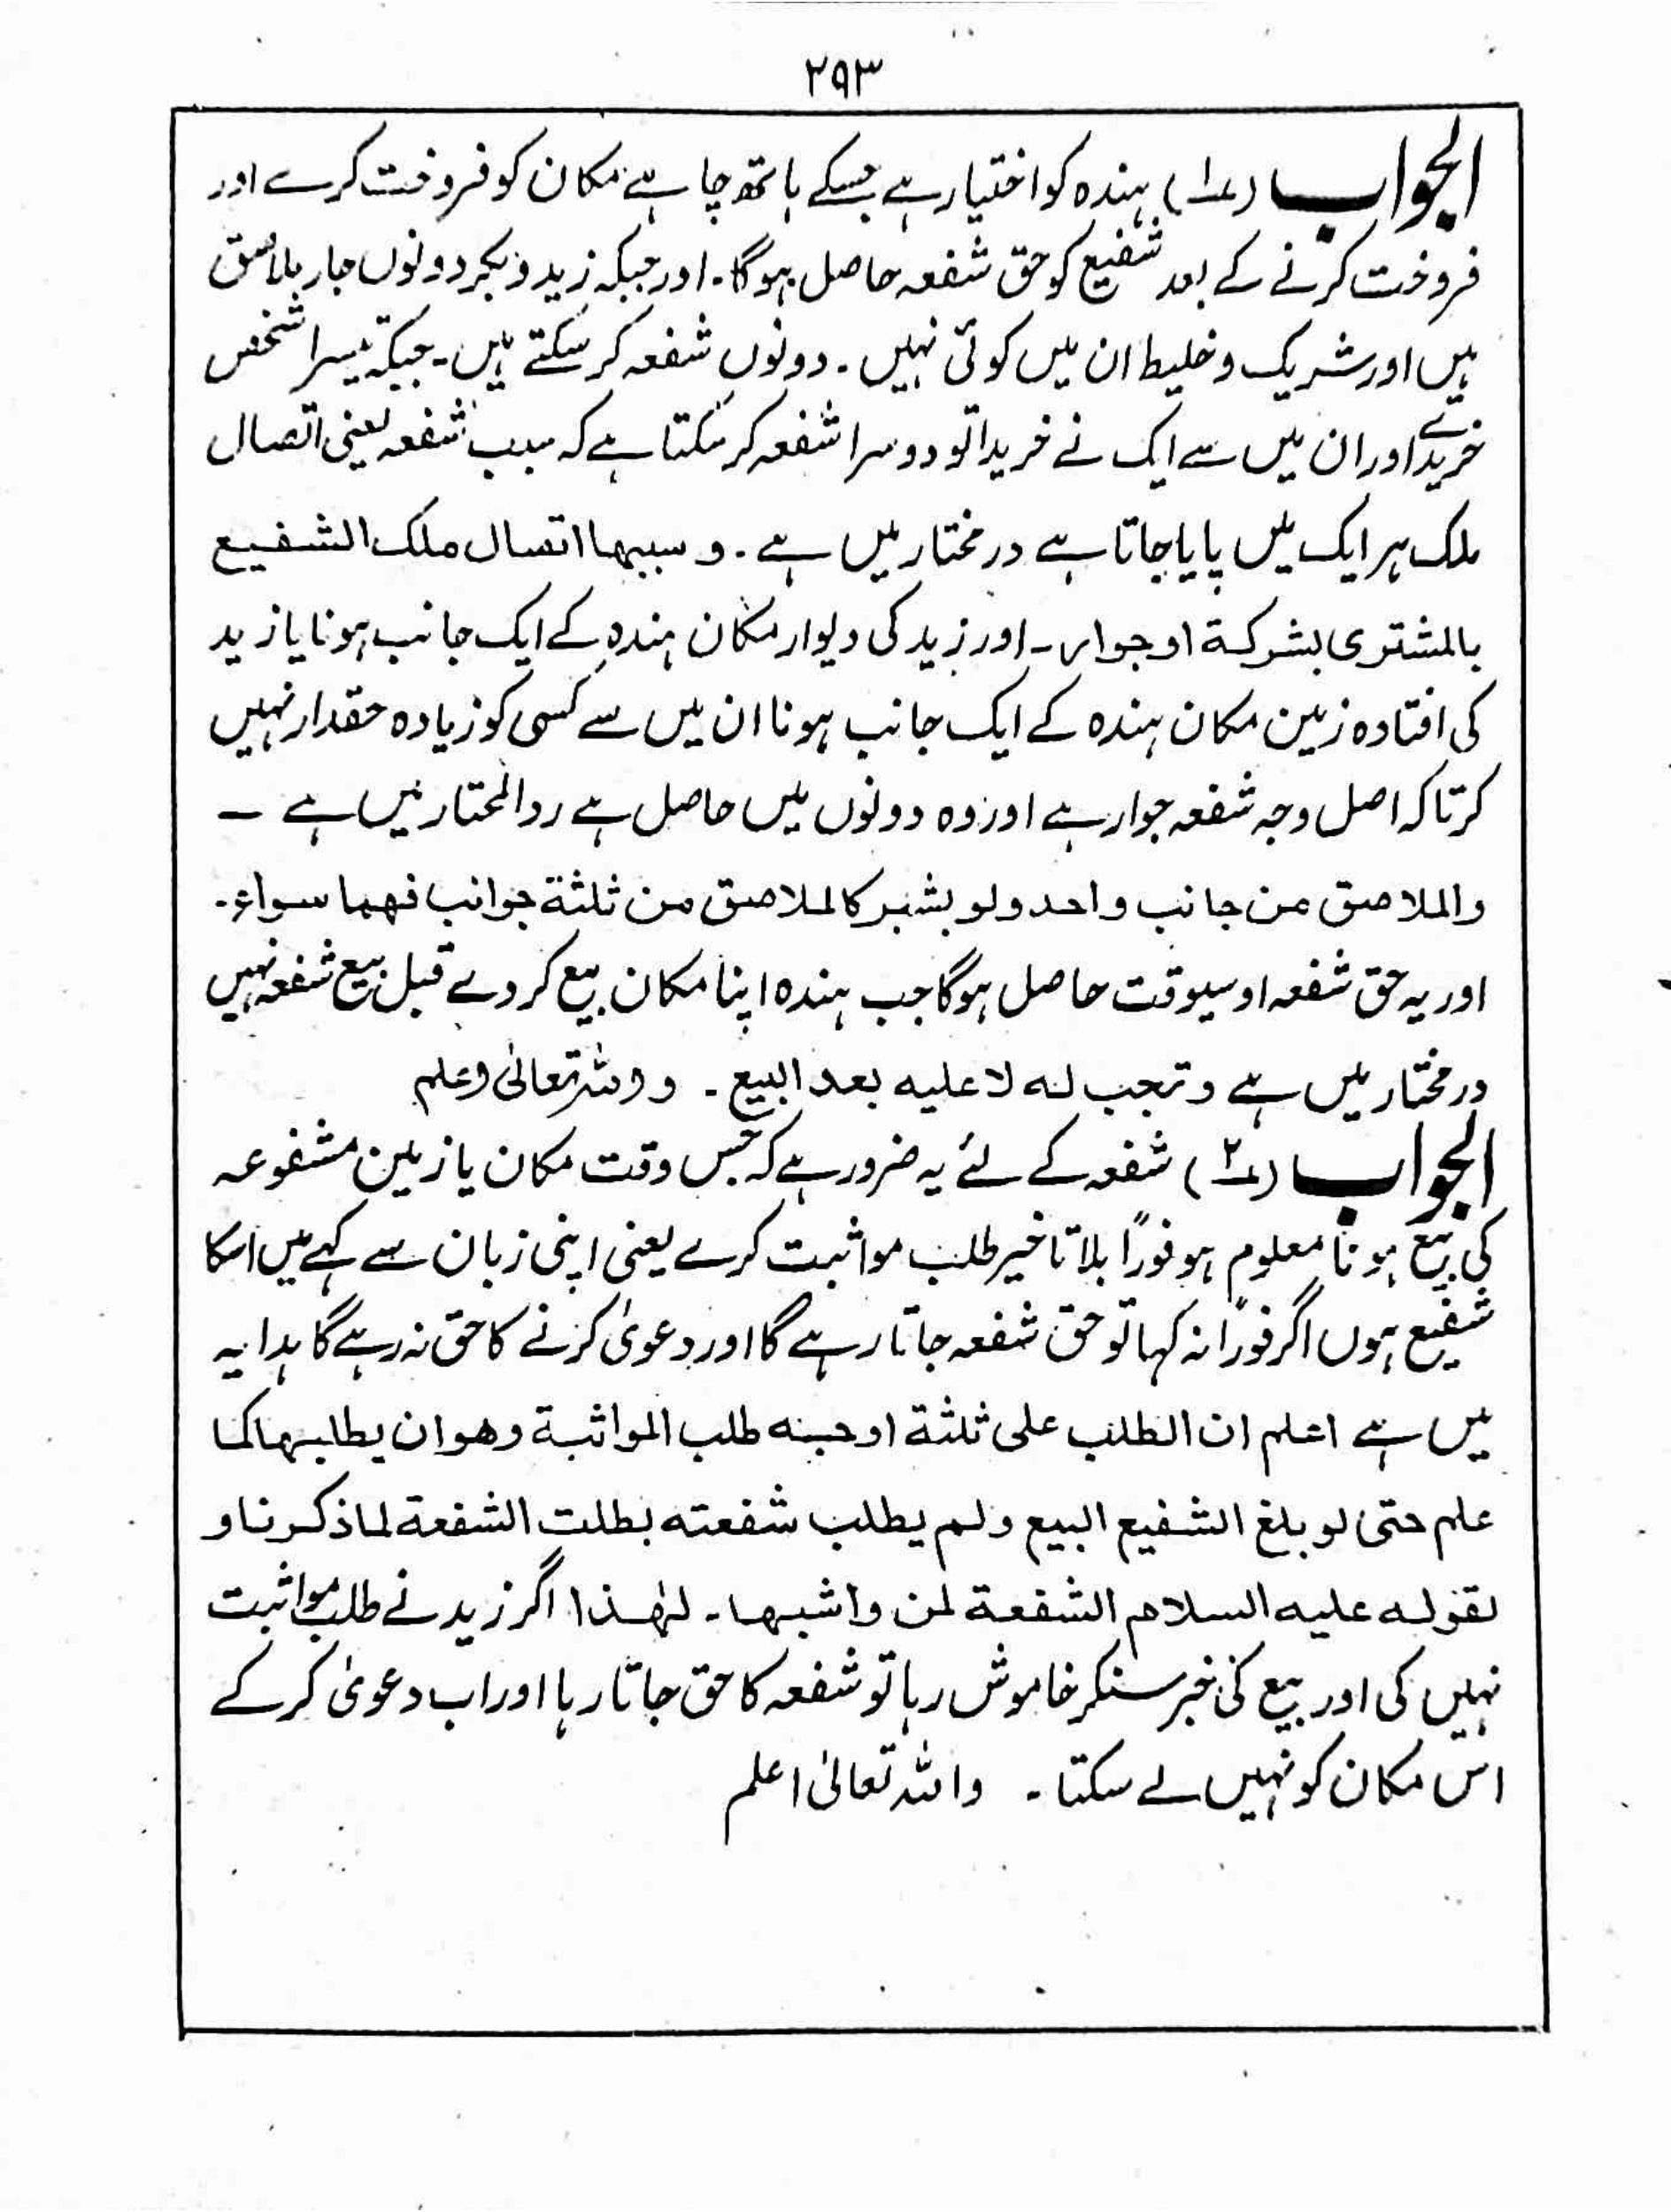 ۲۹۳
الجواب (۱) ہندہ کو اختیار ہے جسکے ہاتھ چاہے مکان کو فروخت کرے اور
فروخت کرنے کے بعد شفیع کو حق شفعہ حاصل ہوگا۔ اور جبکہ زید و بکر دونوں جار ملاصق
ہیں اور شریک و خلیط ان میں کوئی نہیں۔ دونوں شفعہ کر سکتے ہیں۔ جبکہ تیسرا شخص
خریدے اور ان میں سے ایک نے خریدا تو دوسرا شفعہ کر سکتا ہے کہ سبب شفعہ یعنی اتصال
ملک ہر ایک میں پایا جاتا ہے در مختار میں ہے۔ و سببها اتصال ملك الشفيع
بالمشترى بشركة او جوار۔ اور زید کی دیوار مکان ہندہ کے ایک جانب ہونا یا زید
کی افتادہ زمین مکان ہندہ کے ایک جانب ہونا ان میں سے کسی کو زیادہ حقدار نہیں
کرتا کہ اصل وجہ شفعہ جوار ہے اور وہ دونوں میں حاصل ہے رد المحتار میں ہے ۔
والملاصق من جانب واحد ولو بشبر كالملاصق من ثلثة جوانب فهما سواء۔
اور یہ حق شفعہ اوسیوقت حاصل ہوگا جب ہندہ اپنا مکان بیع کر دے قبل بیع شفعہ نہیں
در مختار میں ہے وتجب له لا عليه بعد البيع۔ واللہ تعالیٰ اعلم
الجواب (۲) شفعہ کے لئے یہ ضرور ہے کہ جس وقت مکان یا زمین مشفوعہ
کی بیع ہونا معلوم ہو فوراً بلا تاخیر طلب مواثبت کرے یعنی اپنی زبان سے کہے میں اسکا
شفیع ہوں اگر فوراً نہ کہا تو حق شفعہ جاتا رہے گا اور دعویٰ کرنے کا حق نہ رہے گا ہدایہ
میں ہے اعلم ان الطلب على ثلثة اوجه طلب المواثبة وهو ان يطلبها كما
علم حتى لو بلغ الشفيع البيع ولم يطلب شفعته بطلت الشفعة لما ذكرنا و
لقوله عليه السلام الشفعة لمن واثبها۔ لہٰذا اگر زید نے طلب مواثبت
نہیں کی اور بیع کی خبر سنکر خاموش رہا تو شفعہ کا حق جاتا رہا اور اب دعویٰ کر کے
اس مکان کو نہیں لے سکتا۔ واللہ تعالیٰ اعلم